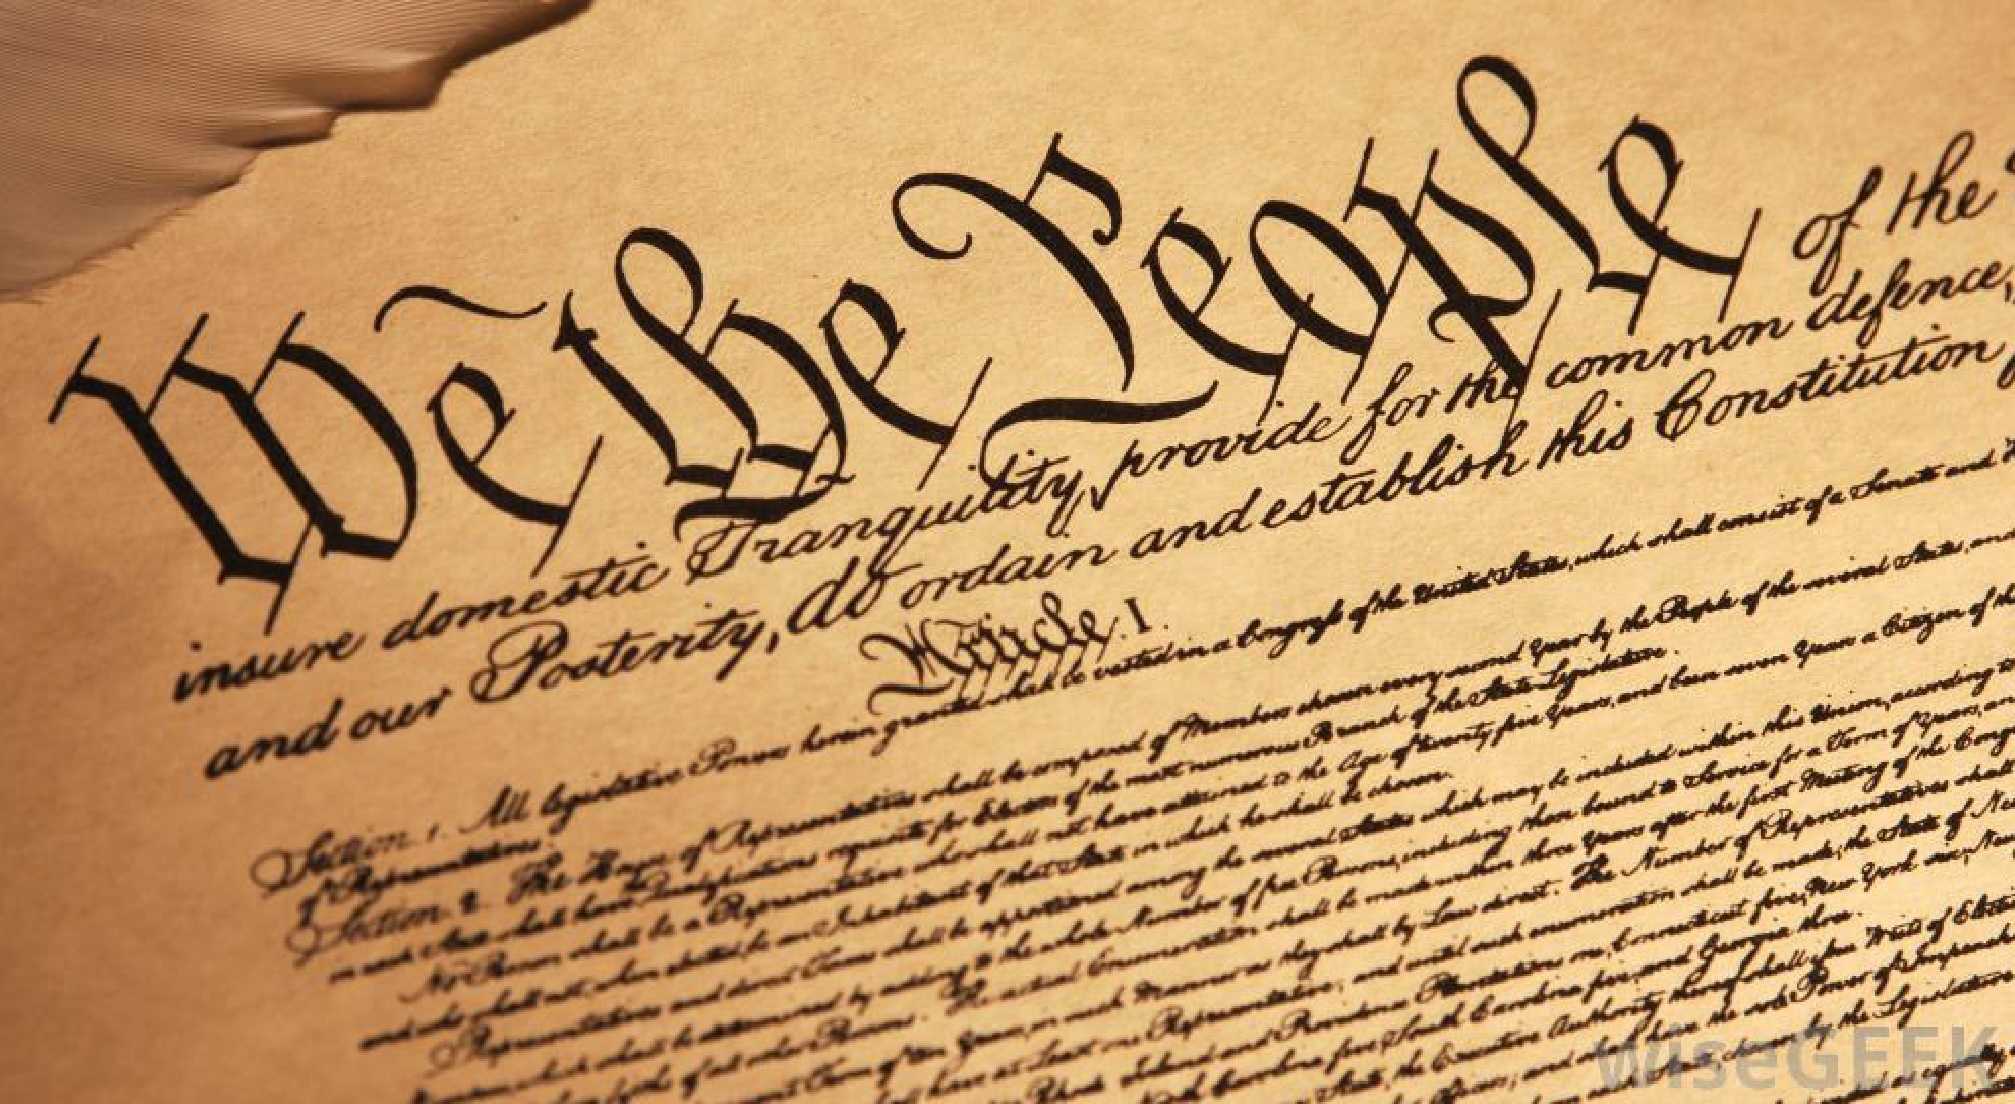 We the People of the
insure domestic Tranquility, provide for the common defence,
and our Posterity, do ordain and establish this Constitution
Article. I.
Section. 1. All legislative Powers herein granted shall be vested in a Congress of the United States, which shall consist of a Senate and
of Representatives.
Section. 2. The House of Representatives shall be composed of Members chosen every second Year by the People of the several States, and
in each State shall have Qualifications requisite for Electors of the most numerous Branch of the State Legislature.
No Person shall be a Representative who shall not have attained to the Age of twenty five Years, and been seven Years a Citizen of the
and who shall not, when elected, be an Inhabitant of that State in which he shall be chosen.
Representatives and direct Taxes shall be apportioned among the several States which may be included within this Union, according to
which shall be determined by adding to the whole Number of free Persons, including those bound to Service for a Term of Years, and
of all other Persons. The actual Enumeration shall be made within three Years after the first Meeting of the
Term of ten Years, in such Manner as they shall by Law direct. The Number of Representatives shall
have at Least one Representative; and until such enumeration shall be made, the State of
Rhode Island and Providence Plantations one, Connecticut five, New York six, New
North Carolina five, South Carolina five, and Georgia three.
State, the Executive Authority thereof shall issue Writs of
and shall have the sole Power of
chosen by the Legislature
wiseGEEK